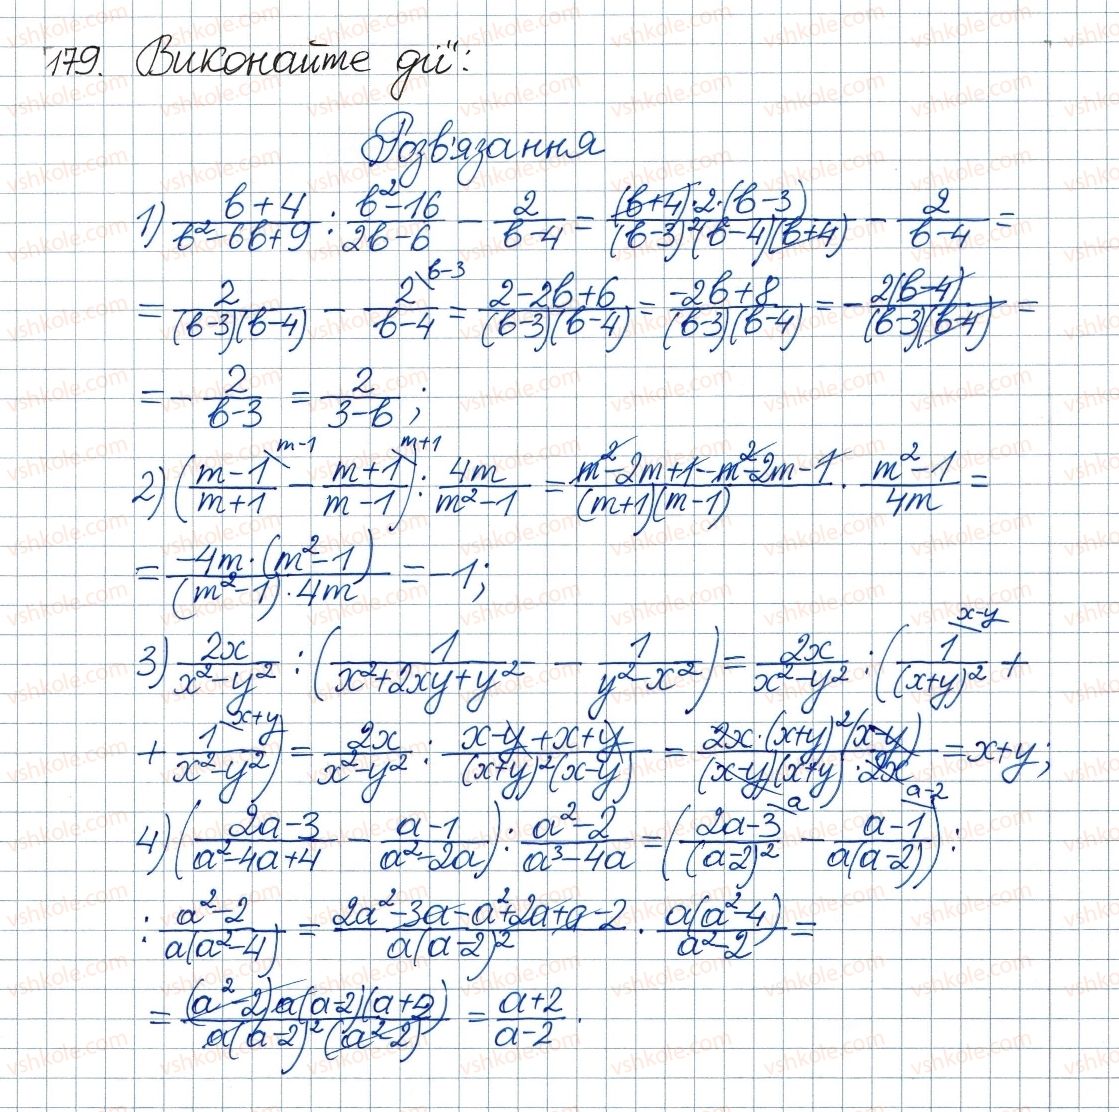 179. Виконайте дії:
Розв'язання
1) (в+4)/(в²-6в+9) : (в²-16)/(2в-6) - 2/(в-4) = ((в+4)·2·(в-3))/((в-3)²(в-4)(в+4)) - 2/(в-4) =
= 2/((в-3)(в-4)) - 2/(в-4) ^(в-3) = (2-2в+6)/((в-3)(в-4)) = (-2в+8)/((в-3)(в-4)) = - 2(в-4)/((в-3)(в-4)) =
= - 2/(в-3) = 2/(3-в);
2) ((m-1)/(m+1) ^(m-1) - (m+1)/(m-1) ^(m+1)) : 4m/(m²-1) = (m²-2m+1-m²-2m-1)/((m+1)(m-1)) · (m²-1)/4m =
= (-4m·(m²-1))/((m²-1)·4m) = -1;
3) 2x/(x²-y²) : (1/(x²+2xy+y²) - 1/(y²-x²)) = 2x/(x²-y²) : (1/(x+y)² ^(x-y) +
+ 1/(x²-y²) ^(x+y)) = 2x/(x²-y²) : (x-y+x+y)/((x+y)²(x-y)) = (2x·(x+y)²(x-y))/((x-y)(x+y)·2x) = x+y;
4) ((2a-3)/(a²-4a+4) - (a-1)/(a²-2a)) : (a²-2)/(a³-4a) = ((2a-3)/(a-2)² ^a - (a-1)/(a(a-2)) ^(a-2)) :
: (a²-2)/(a(a²-4)) = (2a²-3a-a²+2a+a-2)/(a(a-2)²) · (a(a²-4))/(a²-2) =
= ((a²-2)a(a-2)(a+2))/(a(a-2)²(a²-2)) = (a+2)/(a-2).